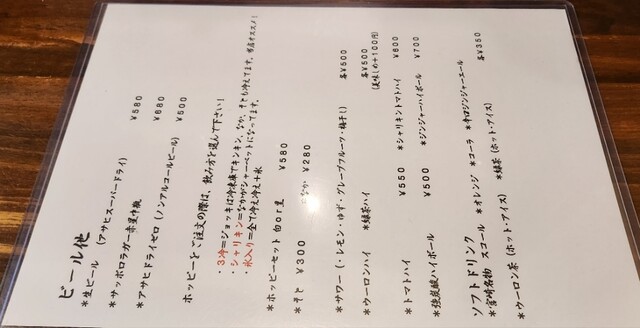 ビール他
*生ビール (アサヒスーパードライ) ¥580
*サッポロラガー赤星中瓶 ¥680
*アサヒドライゼロ (ノンアルコールビール) ¥500
ホッピーをご注文の際は、飲み方を選んで下さい！
・3冷=ジョッキは冷凍庫でキンキン、なか、そとも冷えてます。当店オススメ！
・シャリキン=なかがシャーベットになってます。
・氷入り=全て冷え冷え+氷
*ホッピーセット 白or黒 ¥580
*そと ¥300 *なか ¥280
*サワー (・レモン・ゆず・グレープフルーツ・梅干し) 各¥500
*ウーロンハイ *緑茶ハイ 各¥500
(濃いめ+100円)
*トマトハイ ¥550 *シャリキントマトハイ ¥600
*強炭酸ハイボール ¥500 *ジンジャーハイボール ¥700
ソフトドリンク 各¥350
*宮崎名物 スコール *オレンジ *コーラ *辛口ジンジャーエール
*ウーロン茶 (ホット・アイス) *緑茶 (ホット・アイス)